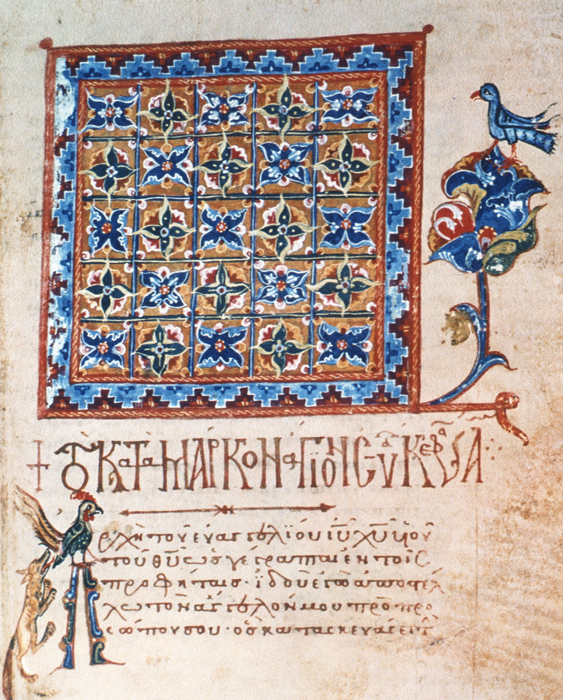 + ΤΟ ΚΑΤΑ ΜΑΡΚΟΝ ΑΓΙΟΝ
Αρχὴ τοῦ εὐαγγελίου ἰυ χυ υἱοῦ
τοῦ θυ ὡς γέγραπται ἐν τοῖς
προφήταισ· ἰδοὺ ἐγὼ ἀποστέλ
λω τὸν ἄγγελόν μου πρὸ προ
σώπου σου· ὃς κατασκευάσει